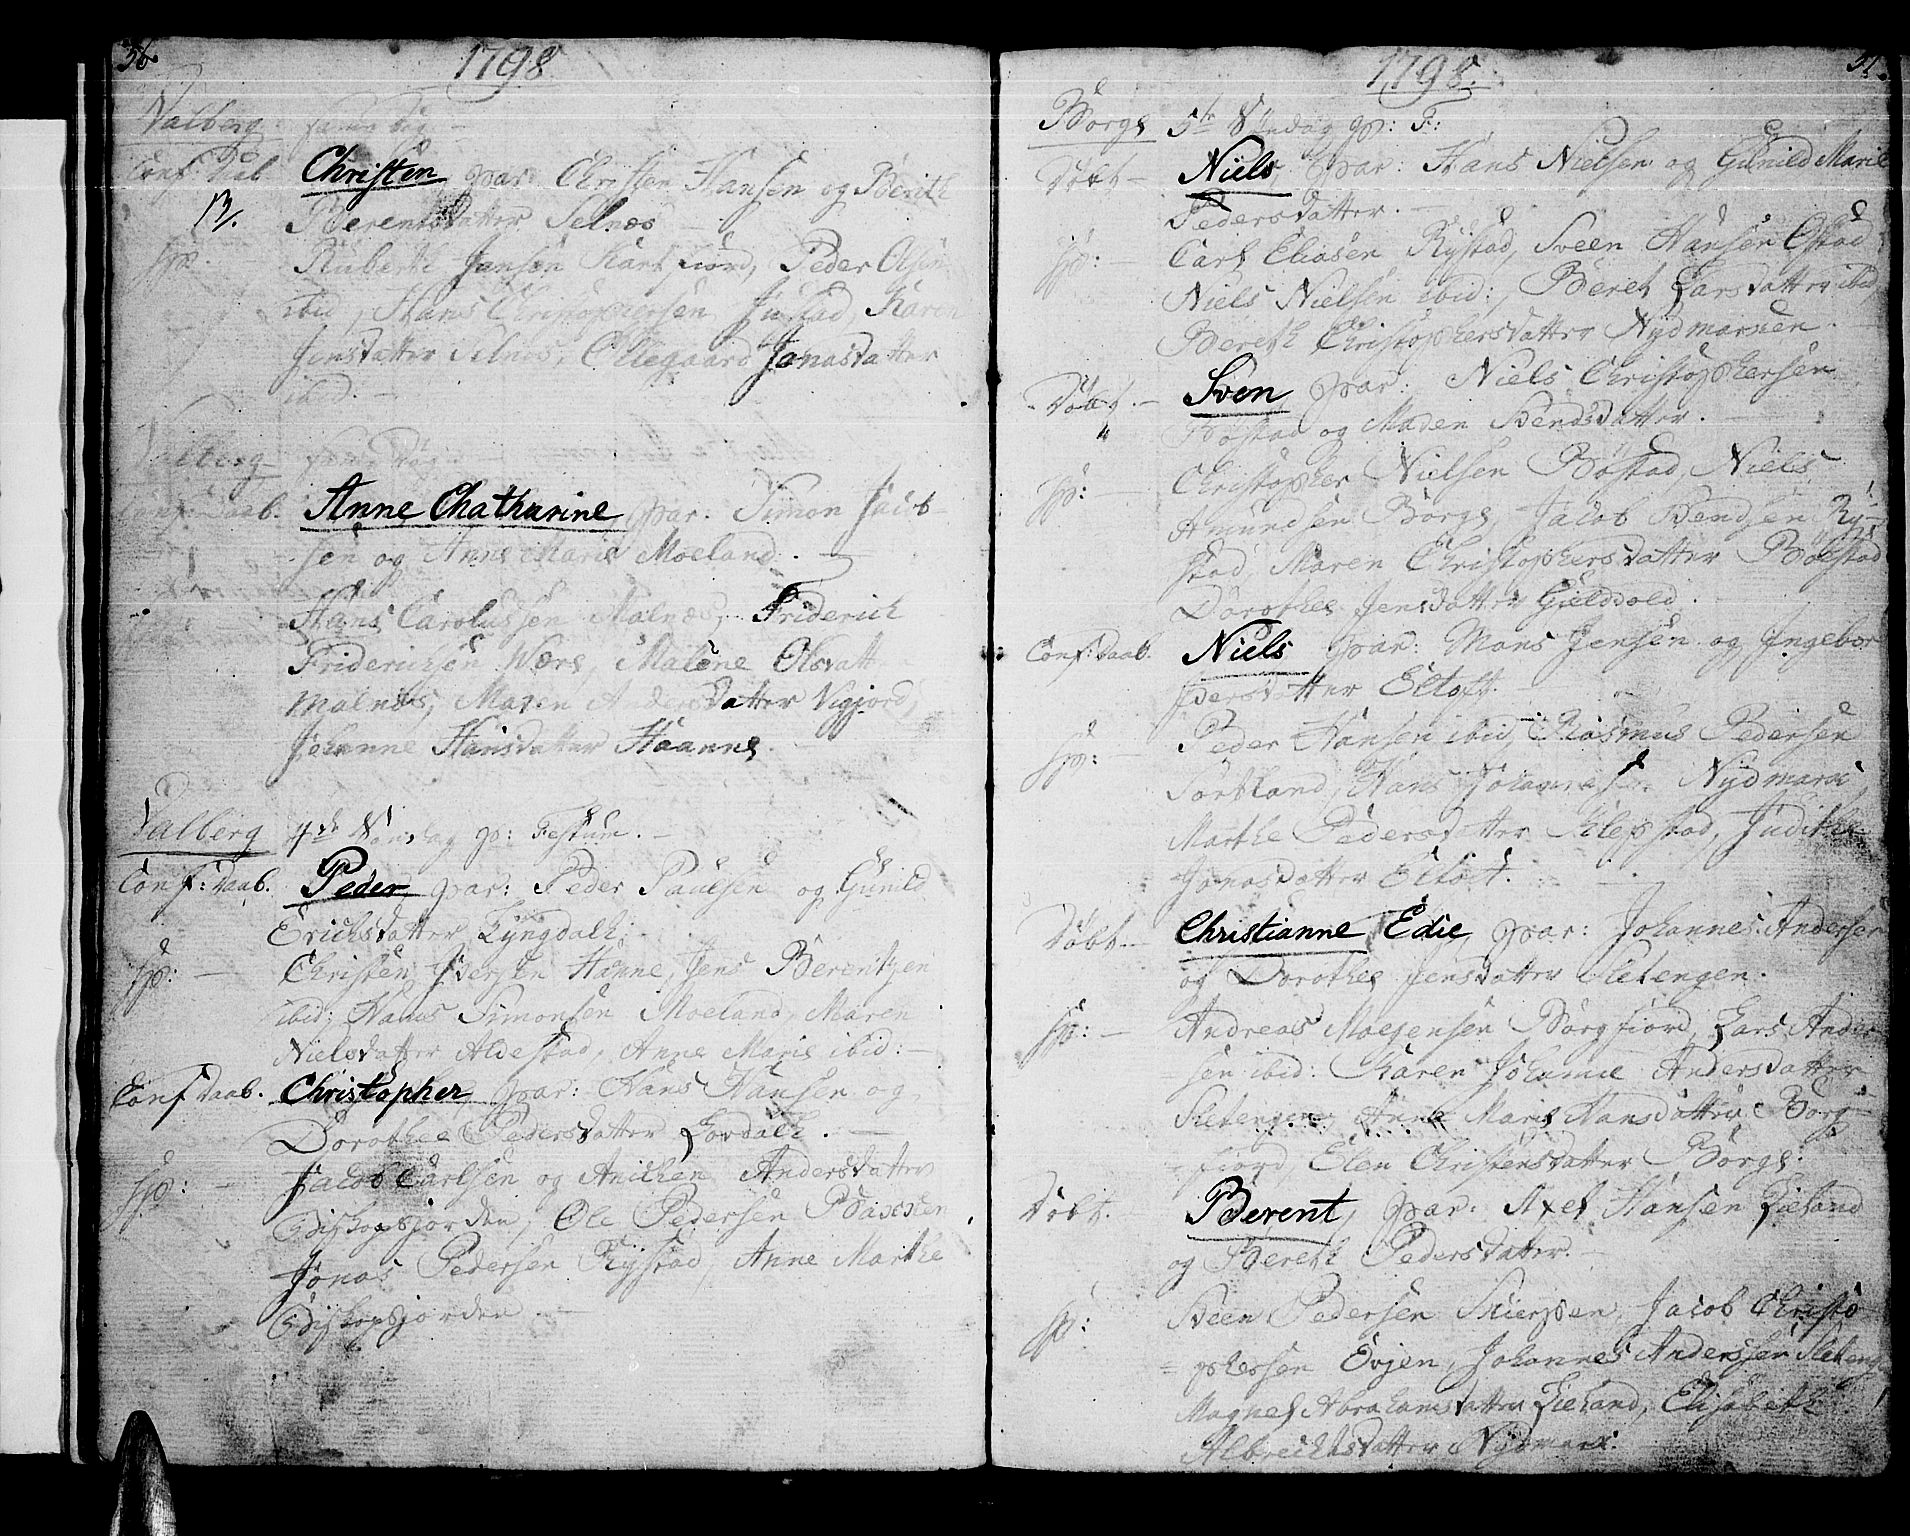 56.
1798
Valberg samme Dag –
Conf: Daab Christen par: Christen Hansen og Berith
Berentsdatter Selnæs –
Sp: Rüberth Jansen Kartfiord, Peder Olsen
ibid, Hans Christophersen Justad, Karen
Jensdatter Selnes, Ollegaard Jonasdatter
ibid. –
Valberg samme Dag. –
Conf: Daab. Anne Chatharine par. Simon Jacob-
sen og Anne Marie Moeland. –
Hans Carolussen Malnæs, Friderich
Friderichsen Værs, Malene Olsdatt
Malnæs, Maren Andersdatter Vigjord,
Johanne Hansdatter Haanne. –
Valberg 4de Søndag p: Festum. –
Conf: Daab. Peder par: Peder Paulsen og Gunild
Erichsdatter Lyngdahl:
Sp: – Christen Hanne, Jens Berentzen
ibid; Hans Simonsen Moeland, Maren
Nielsdatter Aldestad, Anne Marie ibid: –
Conf Daab. Christopher par: Hans Hansen og
Dorothee Pedersdatter Lordahl. –
Sp: – Jacob Carlsen og Anichen Andersdatter
Ole Pedersen
Jonas Pedersen Rystad, Anne Marthe

57.
1798.
Borge 5te Søndag p: F:
Döbt – Niels, par: Hans Nielsen og Gunild Marie
Pedersdatter. –
Sp: – Carl Eliasen Rystad, Sveen Hansen Ostad
Niels Nielsen ibid:, Beret Larsdatter ibid,
Bereth Christophersdatter Nydmarken. –
Döbt. – Sven par: Niels Christophersen
Böstad og Maden Bendsdatter. –
Sp: – Christopher Nielsen Böstad Niels
Amundsen Borge, Jacob Bendsen Ry-
stad, Maren Christophersdatter Boestad
Dorothe Jensdatter
Conf: Daab. Niels par: Mons Jensen og Ingebor
Pedersdatter Eltoft. –
Sp: Peder Hansen ibid, Rasmus Pedersen
Sortland, Hans Nydmark,
Marthe Pedersdatter Klepstad, Judithe
Jonasdatter Eltoft. –
Döbt – Christianne Edie, par: Johannes Andersen
og Dorothe Jensdatter Sletengen.
Sp: – Andreas Moesensen Borgfiord, Lars Ander-
sen ibid: Karen Johanne Andersdatter
Sletengen, Anne Marie Hansdatter Borg-
fiord, Elen Christensdatter Borge.
Döbt. Berent, par: Axel Hansen Lieland
og Bereth Pedersdatter. –
Sp: Steen Pedersen Skierpen, Jacob Christo-
phersen Evjen, Johannes Anderssen Sletenge
Magnel Abrahamsdatter Lieland, Elisabeth
Albrechtsdatter Nydmark.